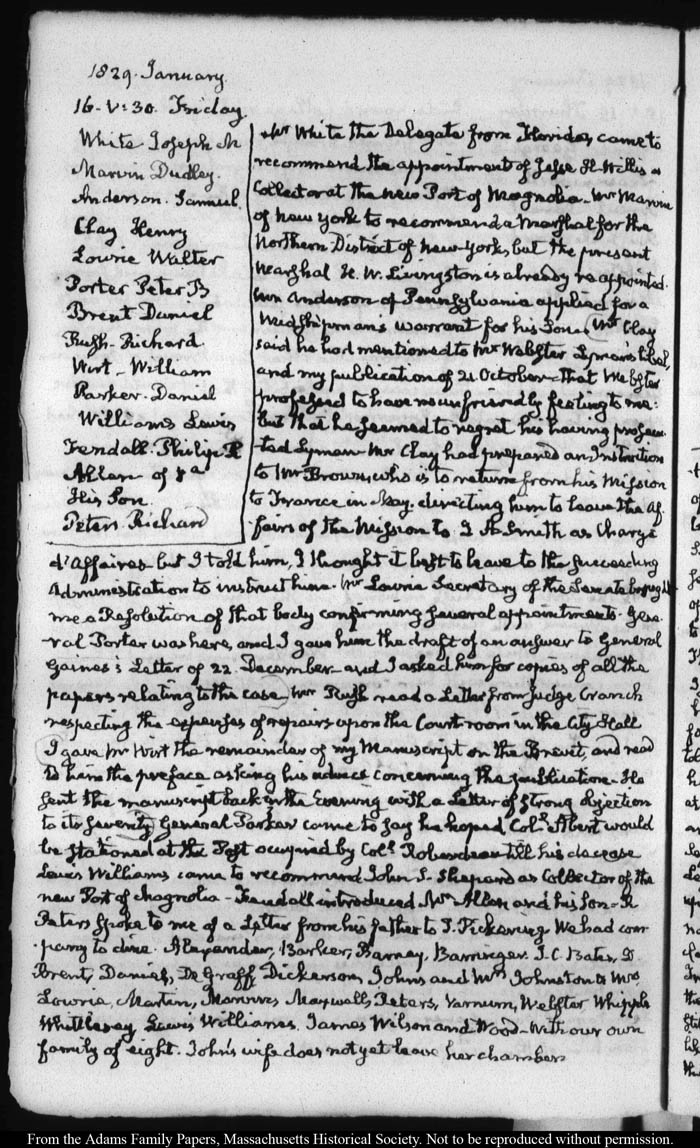 1829. January.
16. V:30. Friday
White Joseph M
Marvin Dudley.
Anderson. Samuel.
Clay Henry
Lowrie Walter
Porter Peter B
Brent Daniel
Rush. Richard.
Wirt. William
Parker. Daniel
Williams Lewis
Fendall. Philip R
Allen of Va
His Son.
Peters Richard
Mr White the Delegate from Florida, came to
recommend the appointment of Jesse H. Willis as
Collector at the new Port of Magnolia. Mr Marvin
of New York to recommend a Marshal for the
Northern District of New-York, but the present
Marshal H. W. Livingston is already reappointed.
Mr Anderson of Pennsylvania applied for a
Midshipmans warrant for his Son. Mr Clay
said he had mentioned to Mr Webster Lyman's libel,
and my publication of 21 October. That Webster
professed to have no unfriendly feeling to me:
but that he seemed to regret his having prosecu-
ted Lyman. Mr Clay had prepared an Instruction
to Mr Brown, who is to return from his Mission
to France in May. directing him to leave the af-
fairs of the Mission to J A Smith as Chargé
d'Affaires but I told him, I thought it best to leave to the succeeding
Administration to instruct him. Mr Lowrie Secretary of the Senate brought
me a Resolution of that body confirming several appointments. Gene-
ral Porter was here, and I gave him the draft of an answer to General
Gaines's Letter of 22. December and I asked him for copies of all the
papers relating to the case. Mr Rush read a Letter from Judge Cranch
respecting the expenses of repairs upon the Court room in the City Hall
I gave Mr Wirt the remainder of my Manuscript on the Brevet, and read
to him the preface asking his advice concerning the publication. He
sent the manuscript back in the Evening with a Letter of strong objection
to its severity General Parker came to say he hoped Coll. Abert would
be stationed at the Post occupied by Coll. Roberdeau till his decease
Lewis Williams came to recommend John S. Shepard as Collector of the
new Port of Magnolia. Fendall introduced Mr Allen and his Son. R
Peters spoke to me of a Letter from his father to T. Pickering We had com-
pany to dine. Alexander, Barker, Barney, Barringer. I. C. Bates, D
Brent, Daniel, De Graff Dickerson, Johns and Mrs Johnston & Mrs
Lowrie, Martin, Maxwell, Peters, Varnum, Webster Whipple
Whittlesey Lewis Williams. James Wilson and Wood. With our own
family of eight. John's wife does not yet leave her chamber
From the Adams Family Papers, Massachusetts Historical Society. Not to be reproduced without permission.